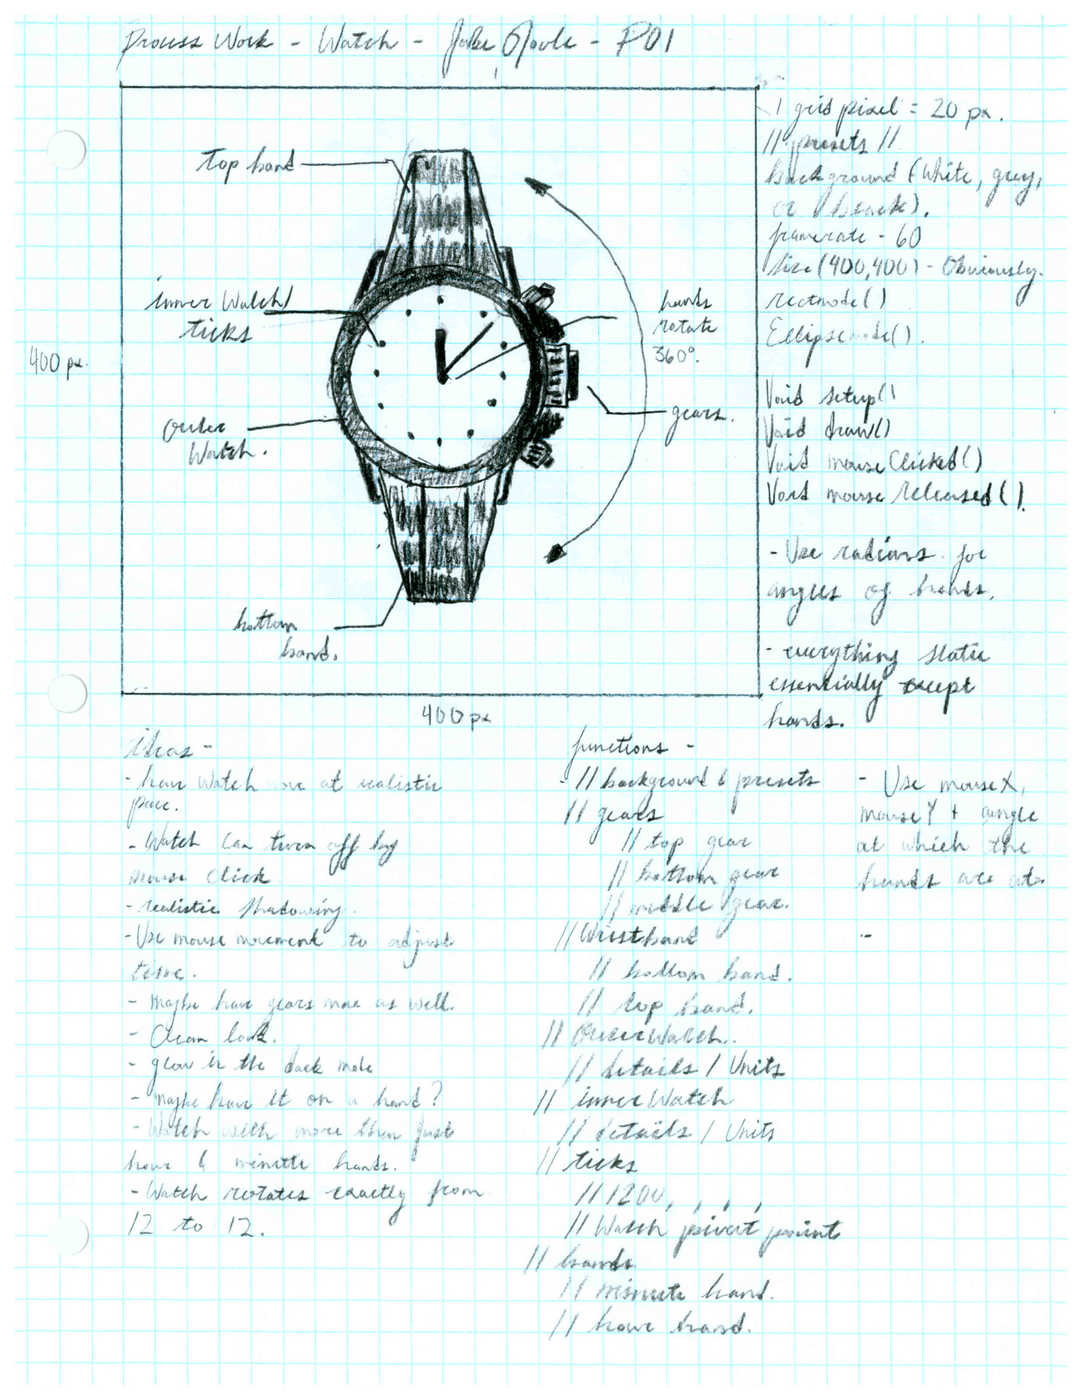 Process Work - Watch - - P01
1 grid pixel = 20 px.
// presets //
background (White, grey,
or black).
framerate - 60
size (400,400) - Obviously.
rectmode()
Ellipsemode().
Void setup()
Void draw()
Void mouseClicked()
Void mouse Released().
- Use radians for
angles of hands.
- everything static
essentially except
hands.
top band
inner Watch/
ticks
outer
Watch.
bottom
band.
hands
rotate
360°.
gears.
400 px.
400 px
ideas -
- have Watch move at realistic
pace.
- Watch Can turn off by
mouse click
- realistic shadowing.
- Use mouse movement to adjust
time.
- maybe have gears move as well.
- Clean look.
- glow in the dark mode
- maybe have it on a hand?
- Watch with more then just
hour & minute hands.
- Watch rotates exactly from
12 to 12.
functions -
- // background & presets
// gears
// top gear
// bottom gear
// middle gear.
// Wristband
// bottom band.
// top band.
// OuterWatch.
// details / Units
// innerWatch
// details / Units
// ticks
// 1200, , , ,
// Watch pivot point
// hands
// minute hand.
// hour hand.
- Use mouseX,
mouseY + angle
at which the
hands are at.
-